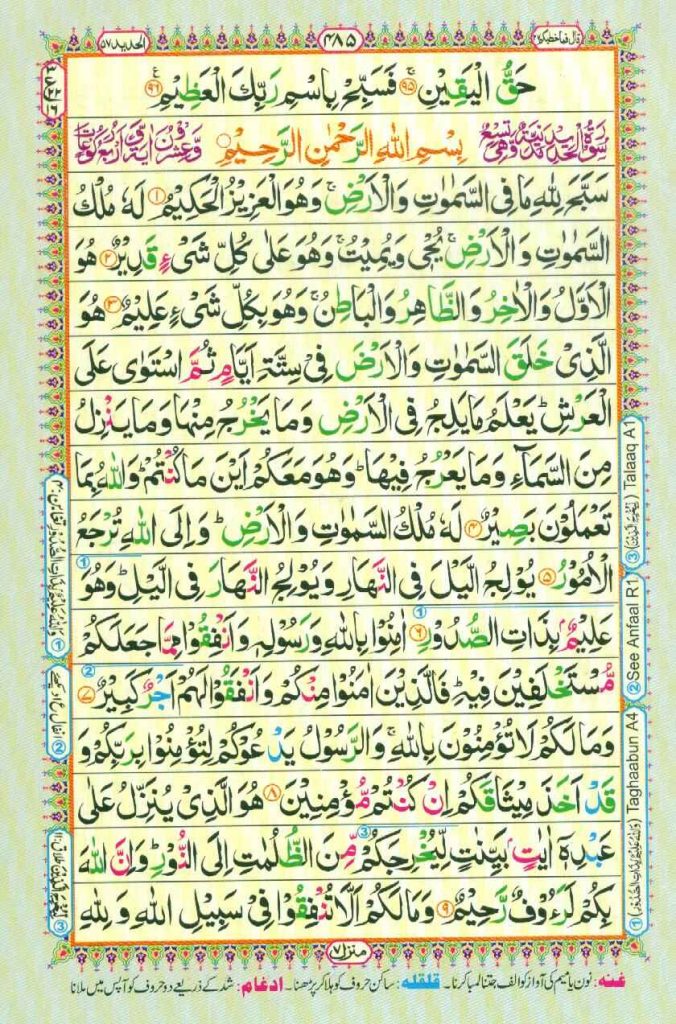 قال فما خطبكم ٢٧
٤٨٥
الحديد ٥٧
حَقُّ الْيَقِيْنِ ۚ‏ ﴿۹۵﴾ فَسَبِّحْ بِاسْمِ رَبِّكَ الْعَظِيْمِ ﴿۹۶﴾
بِسْمِ اللهِ الرَّحْمٰنِ الرَّحِيْمِ
سَبَّحَ لِلّٰهِ مَا فِى السَّمٰوٰتِ وَالْاَرْضِ ۚ وَهُوَ الْعَزِيْزُ الْحَكِيْمُ ﴿۱﴾ لَهٗ مُلْكُ
السَّمٰوٰتِ وَالْاَرْضِ ۚ يُحْىٖ وَيُمِيْتُ ۚ وَهُوَ عَلٰى كُلِّ شَىْءٍ قَدِيْرٌ ﴿۲﴾ هُوَ
الْاَوَّلُ وَالْاٰخِرُ وَالظَّاهِرُ وَالْبَاطِنُ ۚ وَهُوَ بِكُلِّ شَىْءٍ عَلِيْمٌ ﴿۳﴾ هُوَ
الَّذِىْ خَلَقَ السَّمٰوٰتِ وَالْاَرْضَ فِىْ سِتَّةِ اَيَّامٍ ثُمَّ اسْتَوٰى عَلَى
الْعَرْشِ ؕ يَعْلَمُ مَا يَلِجُ فِى الْاَرْضِ وَمَا يَخْرُجُ مِنْهَا وَمَا يَنْزِلُ
مِنَ السَّمَآءِ وَمَا يَعْرُجُ فِيْهَا ؕ وَهُوَ مَعَكُمْ اَيْنَ مَا كُنْتُمْ ؕ وَاللّٰهُ بِمَا
تَعْمَلُوْنَ بَصِيْرٌ ﴿۴﴾ لَهٗ مُلْكُ السَّمٰوٰتِ وَالْاَرْضِ ؕ وَاِلَى اللّٰهِ تُرْجَعُ
الْاُمُوْرُ ﴿۵﴾ يُوْلِجُ الَّيْلَ فِى النَّهَارِ وَيُوْلِجُ النَّهَارَ فِى الَّيْلِ ؕ وَهُوَ
عَلِيْمٌۢ بِذَاتِ الصُّدُوْرِ ﴿۶﴾ اٰمِنُوْا بِاللّٰهِ وَرَسُوْلِهٖ وَاَنْفِقُوْا مِمَّا جَعَلَكُمْ
مُّسْتَخْلَفِيْنَ فِيْهِ ؕ فَالَّذِيْنَ اٰمَنُوْا مِنْكُمْ وَاَنْفَقُوْا لَهُمْ اَجْرٌ كَبِيْرٌ ﴿۷﴾
وَمَا لَكُمْ لَا تُؤْمِنُوْنَ بِاللّٰهِ ۚ وَالرَّسُوْلُ يَدْعُوْكُمْ لِتُؤْمِنُوْا بِرَبِّكُمْ وَ
قَدْ اَخَذَ مِيْثَاقَكُمْ اِنْ كُنْتُمْ مُّؤْمِنِيْنَ ﴿۸﴾ هُوَ الَّذِىْ يُنَزِّلُ عَلٰى
عَبْدِهٖۤ اٰيٰتٍۭ بَيِّنٰتٍ لِّيُخْرِجَكُمْ مِّنَ الظُّلُمٰتِ اِلَى النُّوْرِ ؕ وَاِنَّ اللّٰهَ
بِكُمْ لَرَءُوْفٌ رَّحِيْمٌ ﴿۹﴾ وَمَا لَكُمْ اَلَّا تُنْفِقُوْا فِىْ سَبِيْلِ اللّٰهِ وَلِلّٰهِ
③ Talaaq A1
② See Anfaal R1
① Taghaabun A4
منزل ۷
غنہ: نون یا میم کی آواز کو الف جتنا لمبا کرنا۔ قلقلہ: ساکن حروف کو ہلا کر پڑھنا۔ ادغام: شد کے ذریعے دو حروف کو آپس میں ملانا